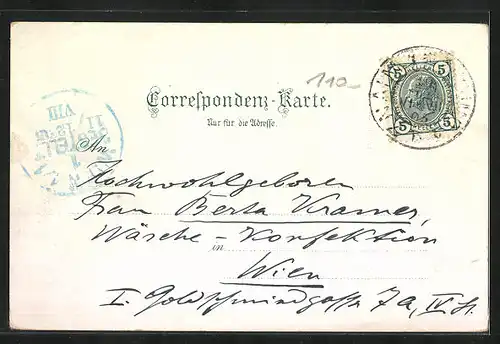 110-
Correspondenz-Karte.
Nur für die Adresse.
5 5
5 5
VIII
An
Hochwohlgeboren
Frau Berta Kramer,
Wäsche-Konfektion
in
Wien
I. Goldschmiedgasse 7a, IV. St.